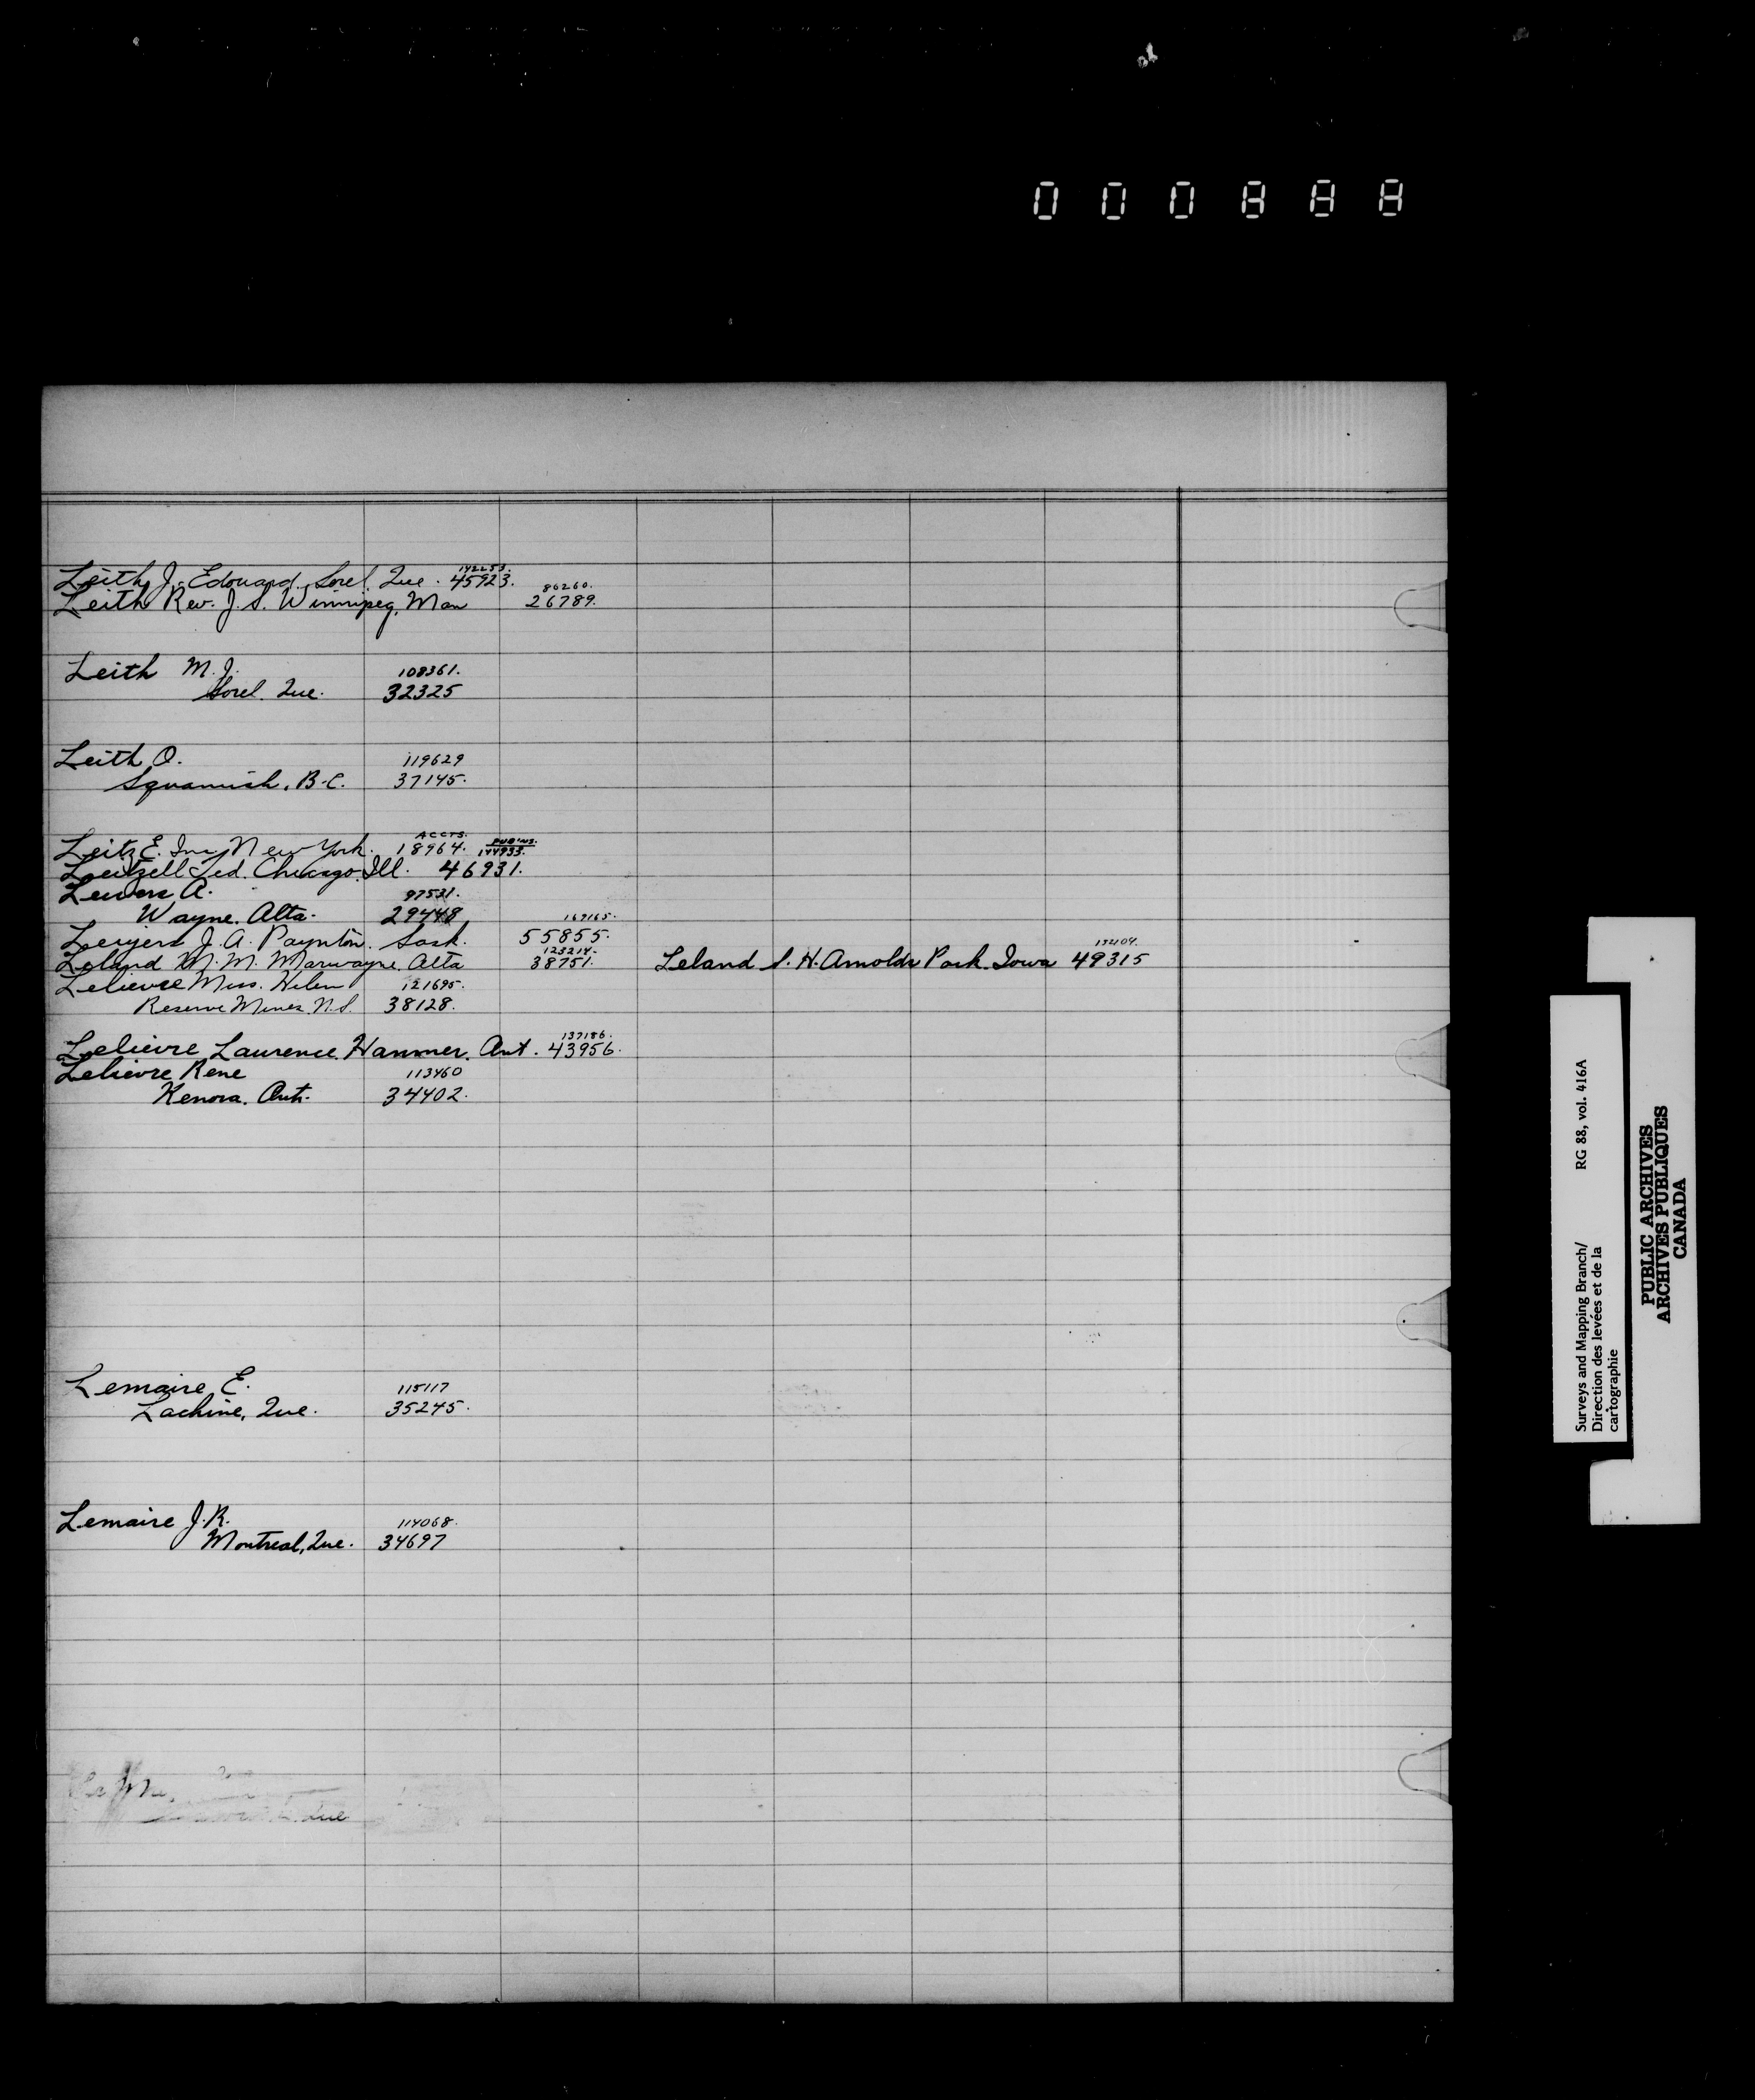 000888
142253.
Leith J. Edouard. Sorel. Que. 45923.
86260.
Leith Rev. J. S. Winnipeg, Man 26789.
Leith M. J. 108361.
Sorel. Que. 32325
Leith O. 119629
Squamish, B.C. 37145.
ACCTS. PUB'NS.
Leitz E. Inc. New York. 18964. 144933.
Leitzell Ted. Chicago. Ill. 46931.
A. 97531.
Wayne. Alta. 29448
169165.
J. A. Paynton. Sask. 55855.
123214.
Leland M. M. Marwayne. Alta 38751.
132104.
Leland S. H. Arnolds Park. Iowa 49315
Lelievre Miss. Helen 121695.
Reserve Mines. N.S. 38128.
137186.
Lelievre Laurence Hanmer. Ont. 43956.
Lelievre Rene 113460
Kenora. Ont. 34402.
Lemaire E. 115117
Lachine, Que. 35245.
Lemaire J. R. 114068.
Montreal, Que. 34697
Que
Surveys and Mapping Branch/ RG 88, vol. 416A
Direction des levées et de la
cartographie
PUBLIC ARCHIVES
ARCHIVES PUBLIQUES
CANADA